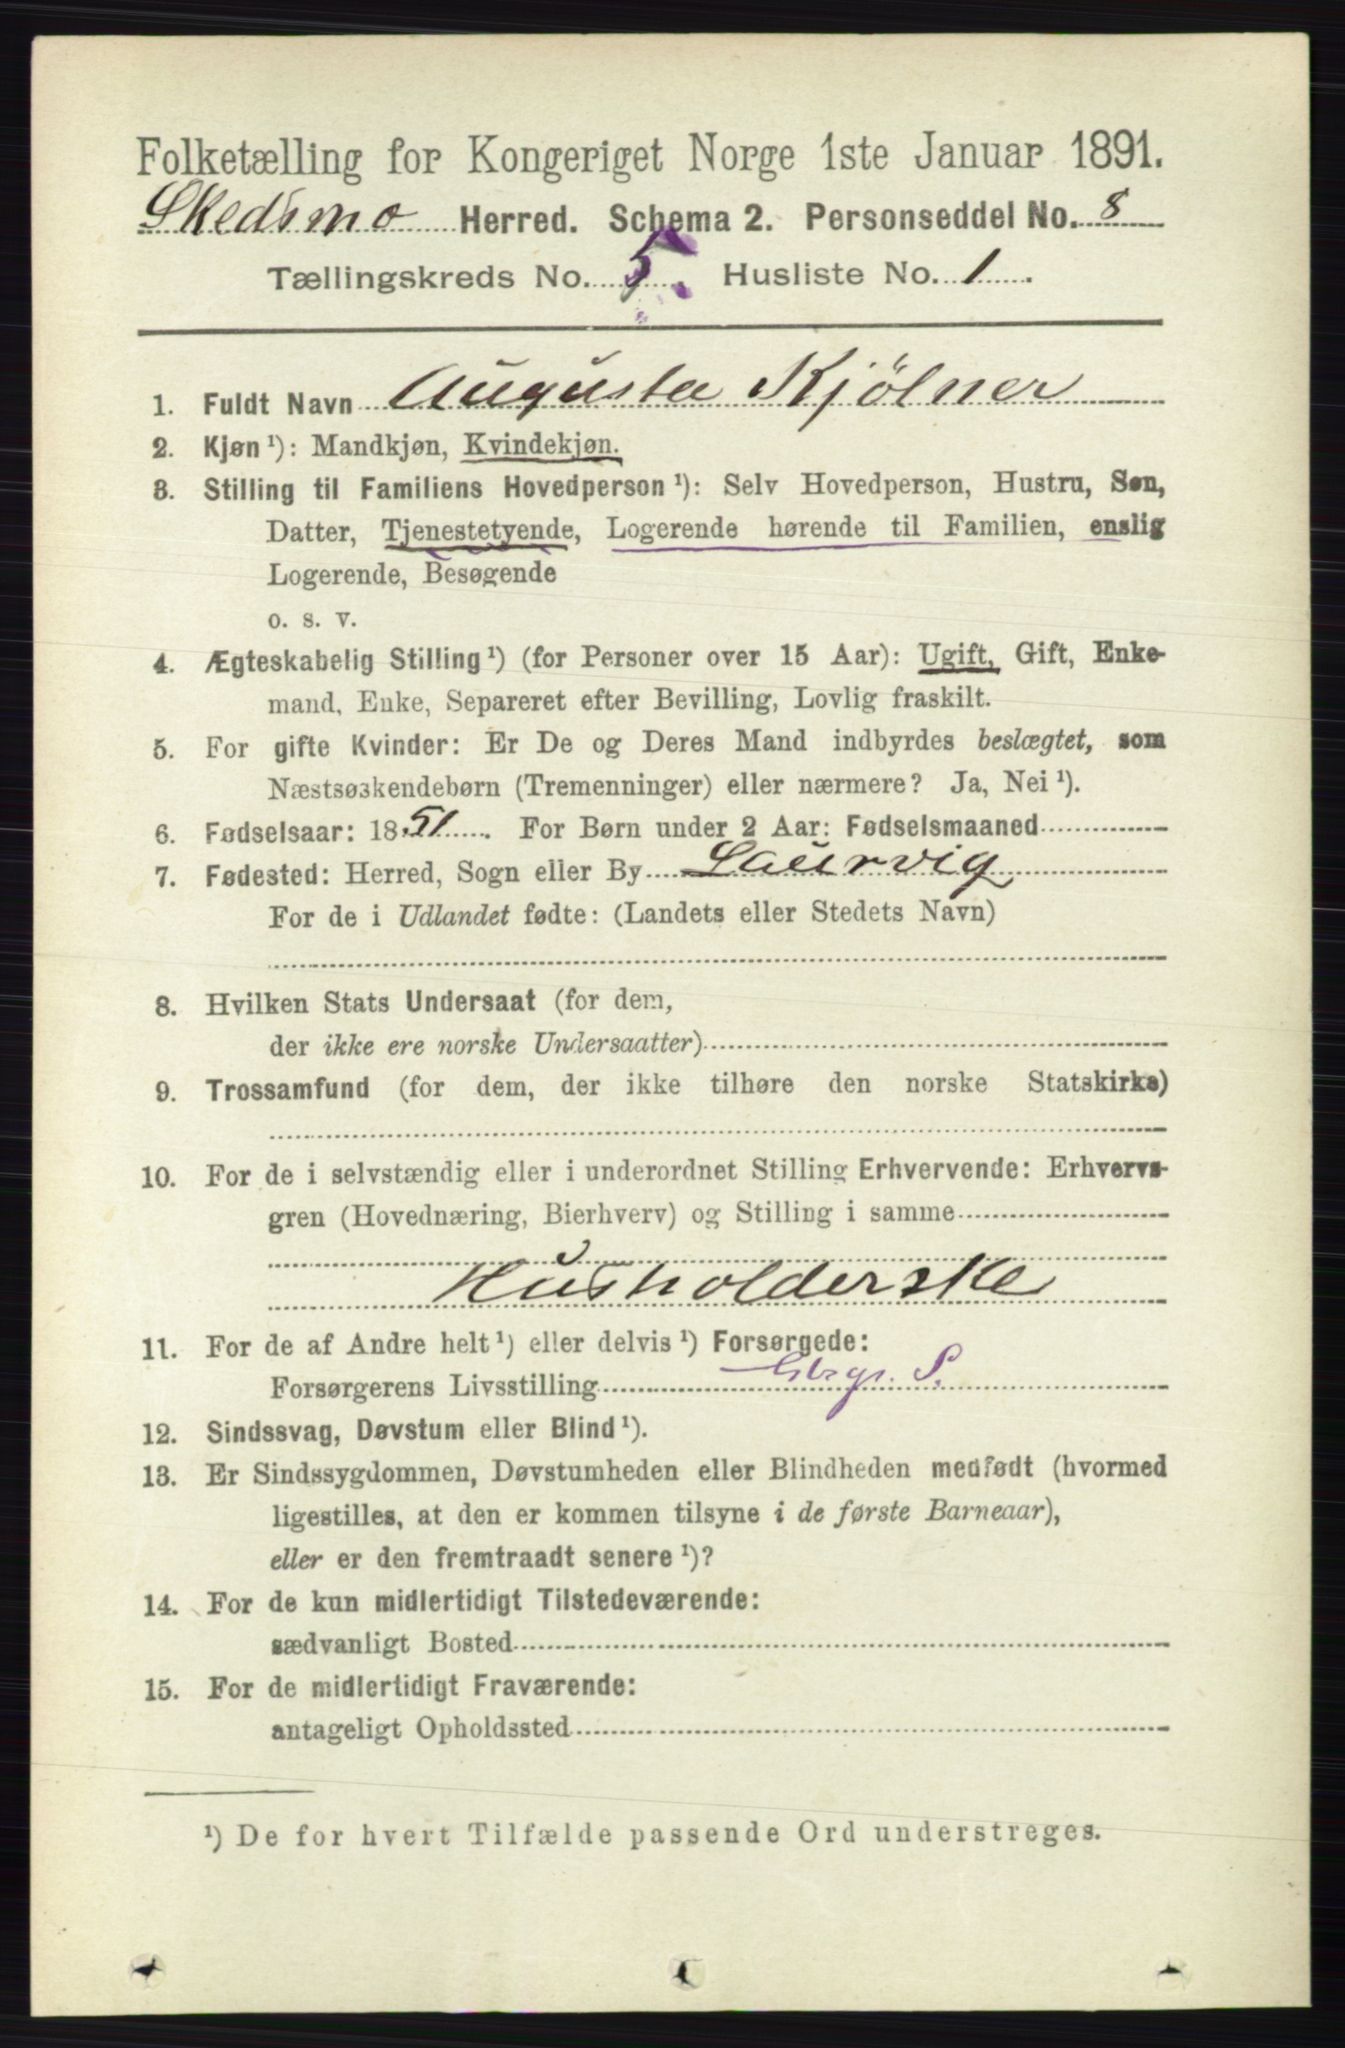 Folketælling for Kongeriget Norge 1ste Januar 1891.
Skedsmo Herred. Schema 2. Personseddel No. 8
Tællingskreds No. 5. Husliste No. 1.
1. Fuldt Navn Augusta Kjölner
2. Kjøn ¹): Mandkjøn, Kvindekjøn.
3. Stilling til Familiens Hovedperson ¹): Selv Hovedperson, Hustru, Søn,
Datter, Tjenestetyende, Logerende hørende til Familien, enslig
Logerende, Besøgende
o. s. v.
4. Ægteskabelig Stilling ¹) (for Personer over 15 Aar): Ugift, Gift, Enke-
mand, Enke, Separeret efter Bevilling, Lovlig fraskilt.
5. For gifte Kvinder: Er De og Deres Mand indbyrdes beslægtet, som
Næstsøskendebørn (Tremenninger) eller nærmere? Ja, Nei ¹).
6. Fødselsaar: 1851. For Børn under 2 Aar: Fødselsmaaned
7. Fødested: Herred, Sogn eller By Laurvig
For de i Udlandet fødte: (Landets eller Stedets Navn)
8. Hvilken Stats Undersaat (for dem,
der ikke ere norske Undersaatter)
9. Trossamfund (for dem, der ikke tilhøre den norske Statskirke)
10. For de i selvstændig eller i underordnet Stilling Erhvervende: Erhvervs-
gren (Hovednæring, Bierhverv) og Stilling i samme
Husholderske
11. For de af Andre helt ¹) eller delvis ¹) Forsørgede:
Forsørgerens Livsstilling S.
12. Sindssvag, Døvstum eller Blind ¹).
13. Er Sindssygdommen, Døvstumheden eller Blindheden medfødt (hvormed
ligestilles, at den er kommen tilsyne i de første Barneaar),
eller er den fremtraadt senere ¹)?
14. For de kun midlertidigt Tilstedeværende:
sædvanligt Bosted
15. For de midlertidigt Fraværende:
antageligt Opholdssted
¹) De for hvert Tilfælde passende Ord understreges.